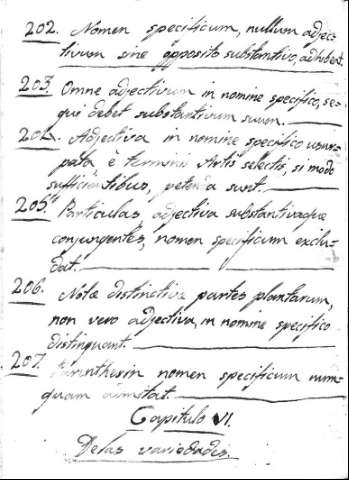 202. Nomen specificum, nullum adjec-
tivum sine opposito substantivo, adhibeat.
203. Omne adjectivum in nomine specifico, se-
qui debet substantivum suum.
204. Adjectiva in nomine specifico usur-
pata è terminis Artis selectis, si modo
sufficientibus, petenda sunt.
205. Particulas adjectiva substantivaque
conjungentes, nomen specificum exclu-
dat.
206. Notæ distinctivæ partes plantarum,
non vero adjectiva, in nomine specifico
distinguant.
207. Parinthesin nomen specificum num-
quam admittat.
Capitulo VI.
Delas variedades.